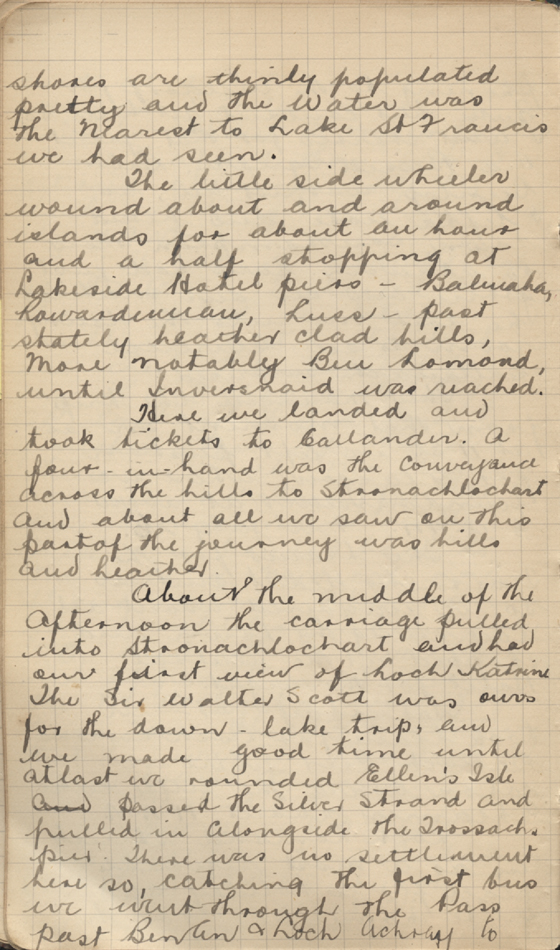 shores are thinly populated
pretty and the water was
the nearest to Lake St Francis
we had seen.
The little side wheeler
wound about and around
islands for about an hour
and a half stopping at
Lakeside Hotel piers - Balmaha,
Rowardennan, Luss - past
stately heather clad hills,
more notably Ben Lomond,
until Inversnaid was reached.
Here we landed and
took tickets to Callander. A
four-in-hand was the conveyance
across the hills to Stronachlochart
and about all we saw on this
part of the journey was hills
and heather.
About the middle of the
afternoon the carriage pulled
into Stronachlochart and had
our first view of Loch Katrine
The Sir Walter Scott was ours
for the down-lake trip, and
we made good time until
at last we rounded Ellen's Isle
and passed the Silver Strand and
pulled in alongside the Trossachs
pier. There was no settlement
here so, catching the first bus
we went through the Pass
past Ben An & Loch Achray to